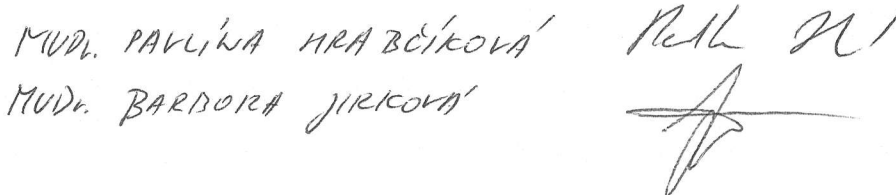 MUDr. PAVLÍNA HRABČÍKOVÁ
MUDr. BARBORA JIRKOVÁ